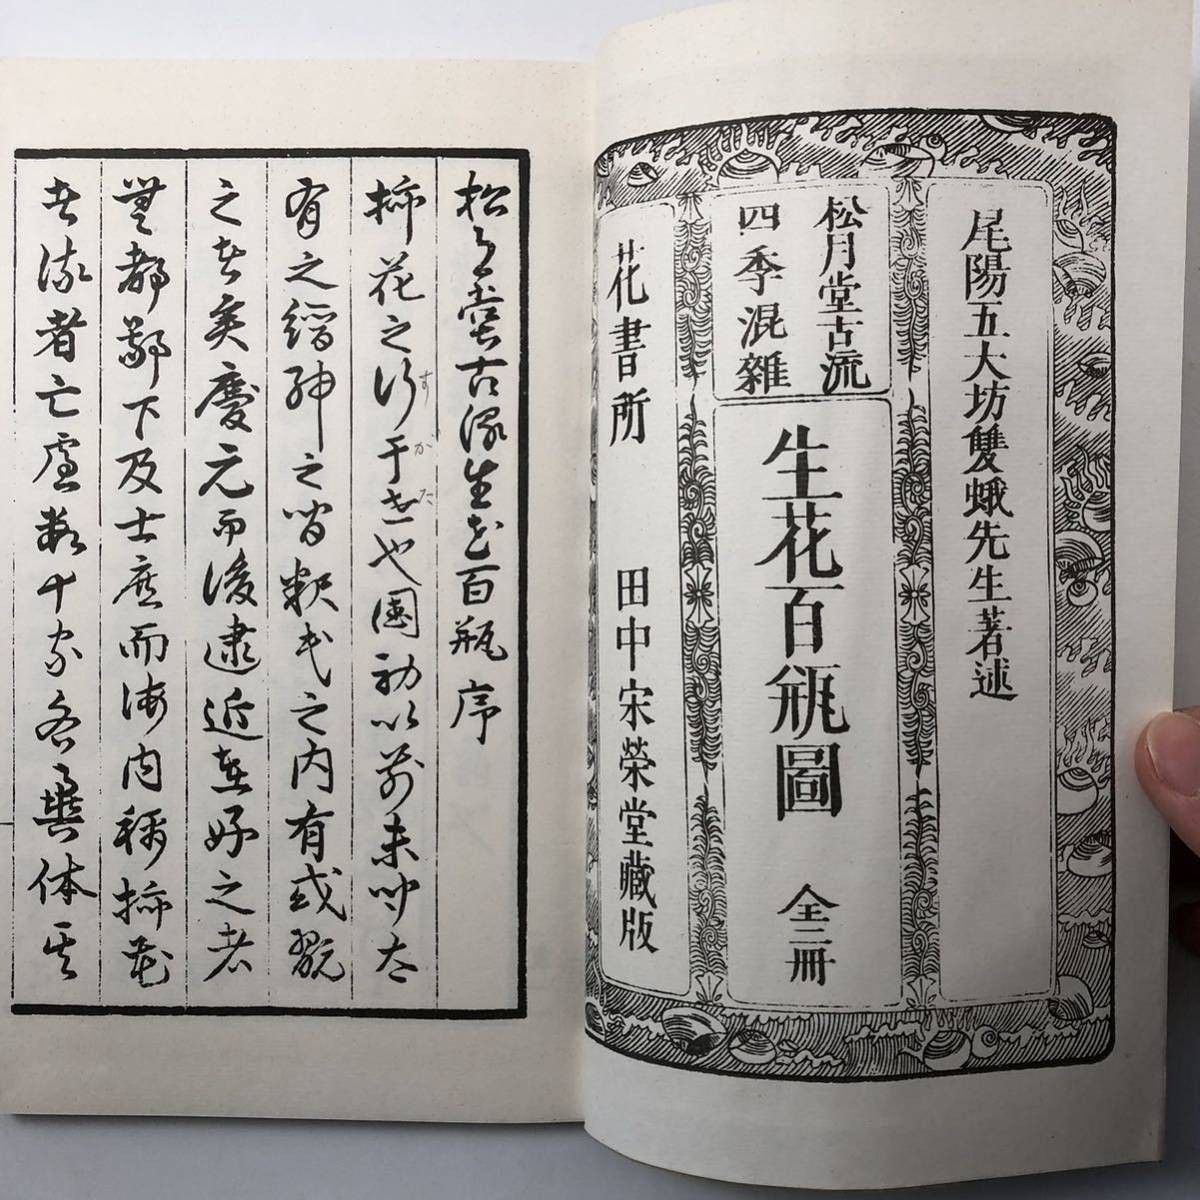 尾陽五大坊雙蛾先生著述
松月堂古流
四季混雜
生花百瓶圖 全二冊
花書所 田中宋榮堂藏版
松月堂古流生花百瓶序
挿花之行于世也國初以前未聞
有之縉紳之間釈氏之内有或翫
之者矣慶元而後逮近世好之者
無都鄙下及士庶而海内称挿花
者流者亡慮数十家各異体
すがた